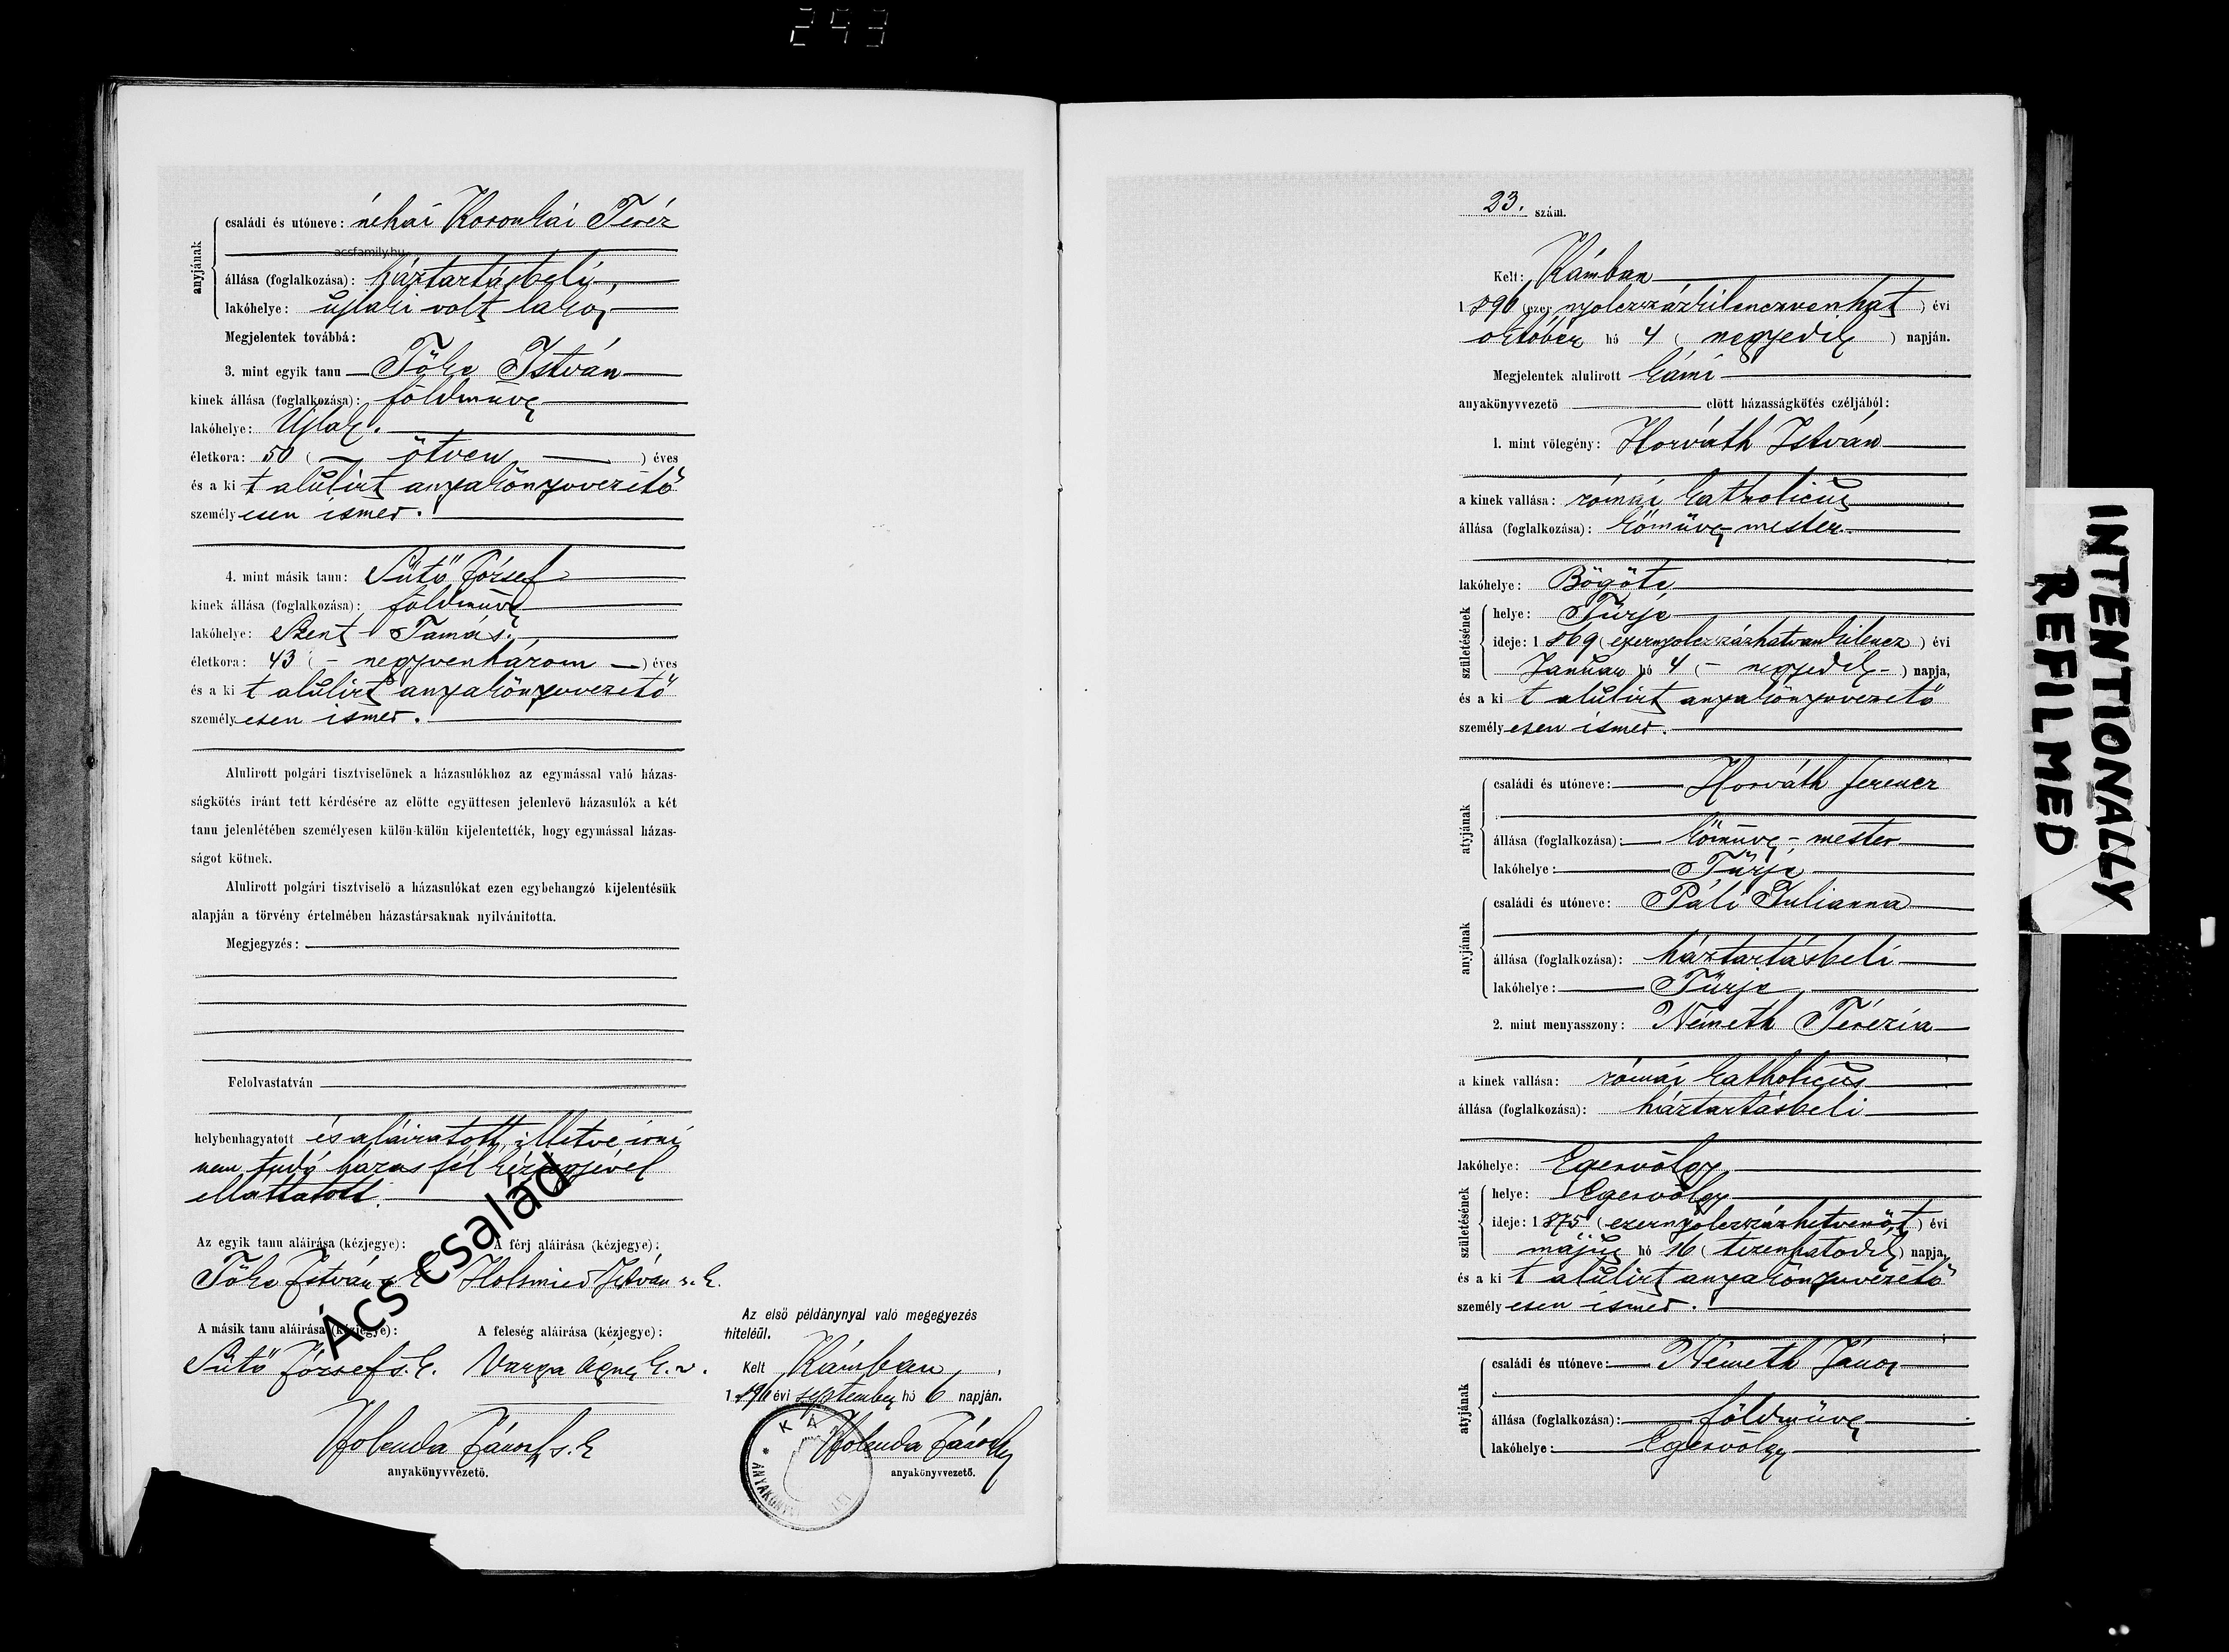 293
családi és utóneve: néhai Koronkai Teréz
acsfamily.hu
anyjának
állása (foglalkozása): háztartásbeli,
lakóhelye: ujlaki volt lakós
Megjelentek továbbá:
3. mint egyik tanu Tőke István
kinek állása (foglalkozása): földműves
lakóhelye: Ujlak.
életkora: 50 (— ötven —) éves
és a kit alulírt anyakönyvvezető
személyesen ismer.
4. mint másik tanu: Sütő József
kinek állása (foglalkozása): földműves
lakóhelye: Szent-Tamás.
életkora: 43 (— negyvenhárom —) éves
és a kit alulírt anyakönyvvezető
személyesen ismer.
Alulirott polgári tisztviselőnek a házasulókhoz az egymással való házas-
ságkötés iránt tett kérdésére az előtte együttesen jelenlevő házasulók a két
tanu jelenlétében személyesen külön-külön kijelentették, hogy egymással házas-
ságot kötnek.
Alulirott polgári tisztviselő a házasulókat ezen egybehangzó kijelentésük
alapján a törvény értelmében házastársaknak nyilvánitotta.
Megjegyzés:
Felolvastatván
helybenhagyatott és aláiratott, illetve irni
nem tudó házas fél kézjegyével
elláttatott.
Ács család
Az egyik tanu aláirása (kézjegye): A férj aláirása (kézjegye):
Tőke István s. k. István s. k.
A másik tanu aláirása (kézjegye): A feleség aláirása (kézjegye):
Sütő József s. k. Varga Ágnes k. v.
Holenda János s. k.
anyakönyvvezető.
Az első példánynyal való megegyezés
hiteléül.
Kelt Kámban
1896 évi september hó 6 napján.
Holenda János
anyakönyvvezető.
23. szám.
Kelt: Kámban
1896 (ezer nyolczszázkilenczvenhat) évi
október hó 4 (negyedik) napján.
Megjelentek alulirott kámi
anyakönyvvezető előtt házasságkötés czéljából:
1. mint vőlegény: Horváth István
a kinek vallása: római katholicus
állása (foglalkozása): kőműves-mester
lakóhelye: Bögöte
születésének
helye: Türje
ideje: 1869 (ezernyolczszázhatvankilencz) évi
Januar hó 4 (— negyedik —) napja,
és a kit alulírt anyakönyvvezető
személyesen ismer.
atyjának
családi és utóneve: Horváth Ferencz
állása (foglalkozása): kőműves-mester
lakóhelye: Türje
anyjának
családi és utóneve: Páli Julianna
állása (foglalkozása): háztartásbeli
lakóhelye: Türje
2. mint menyasszony: Németh Terézia
a kinek vallása: római katholicus
állása (foglalkozása): háztartásbeli
lakóhelye: Egervölgy
születésének
helye: Egervölgy
ideje: 1875 (ezernyolczszázhetvenöt) évi
május hó 16 (tizenhatodik) napja,
és a kit alulírt anyakönyvvezető
személyesen ismer.
atyjának
családi és utóneve: Németh János
állása (foglalkozása): földműves
lakóhelye: Egervölgy
INTENTIONALLY
REFILMED